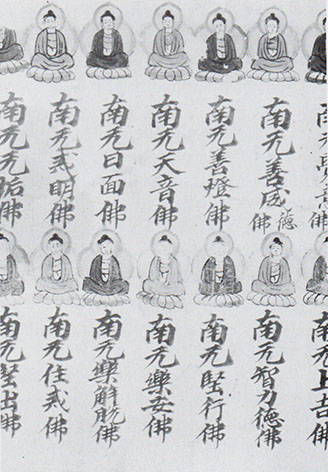 南无善成德佛
南无善燈佛
南无天音佛
南无日面佛
南无戒明佛
南无无垢佛
南无上吉佛
南无智力德佛
南无堅行佛
南无樂安佛
南无樂解脱佛
南无住戒佛
南无堅出佛